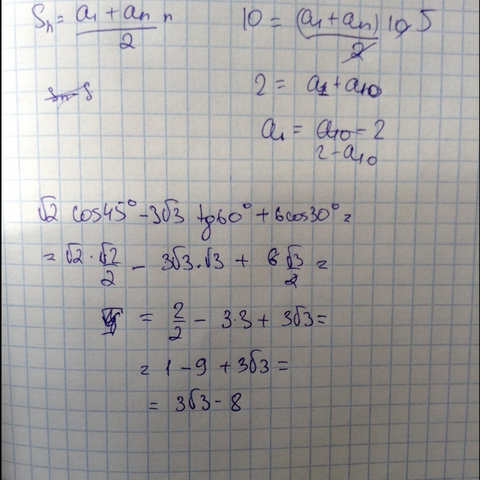 Sₙ = (a₁ + aₙ)/2 n
10 = (a₁ + aₙ)/2 10 5
2 = a₁ + a₁₀
a₁ = a₁₀ - 2
2 - a₁₀
√2 cos45° - 3√3 tg60° + 6cos30° =
= √2 · √2/2 - 3√3 · √3 + 6 √3/2 =
= 2/2 - 3·3 + 3√3 =
= 1 - 9 + 3√3 =
= 3√3 - 8